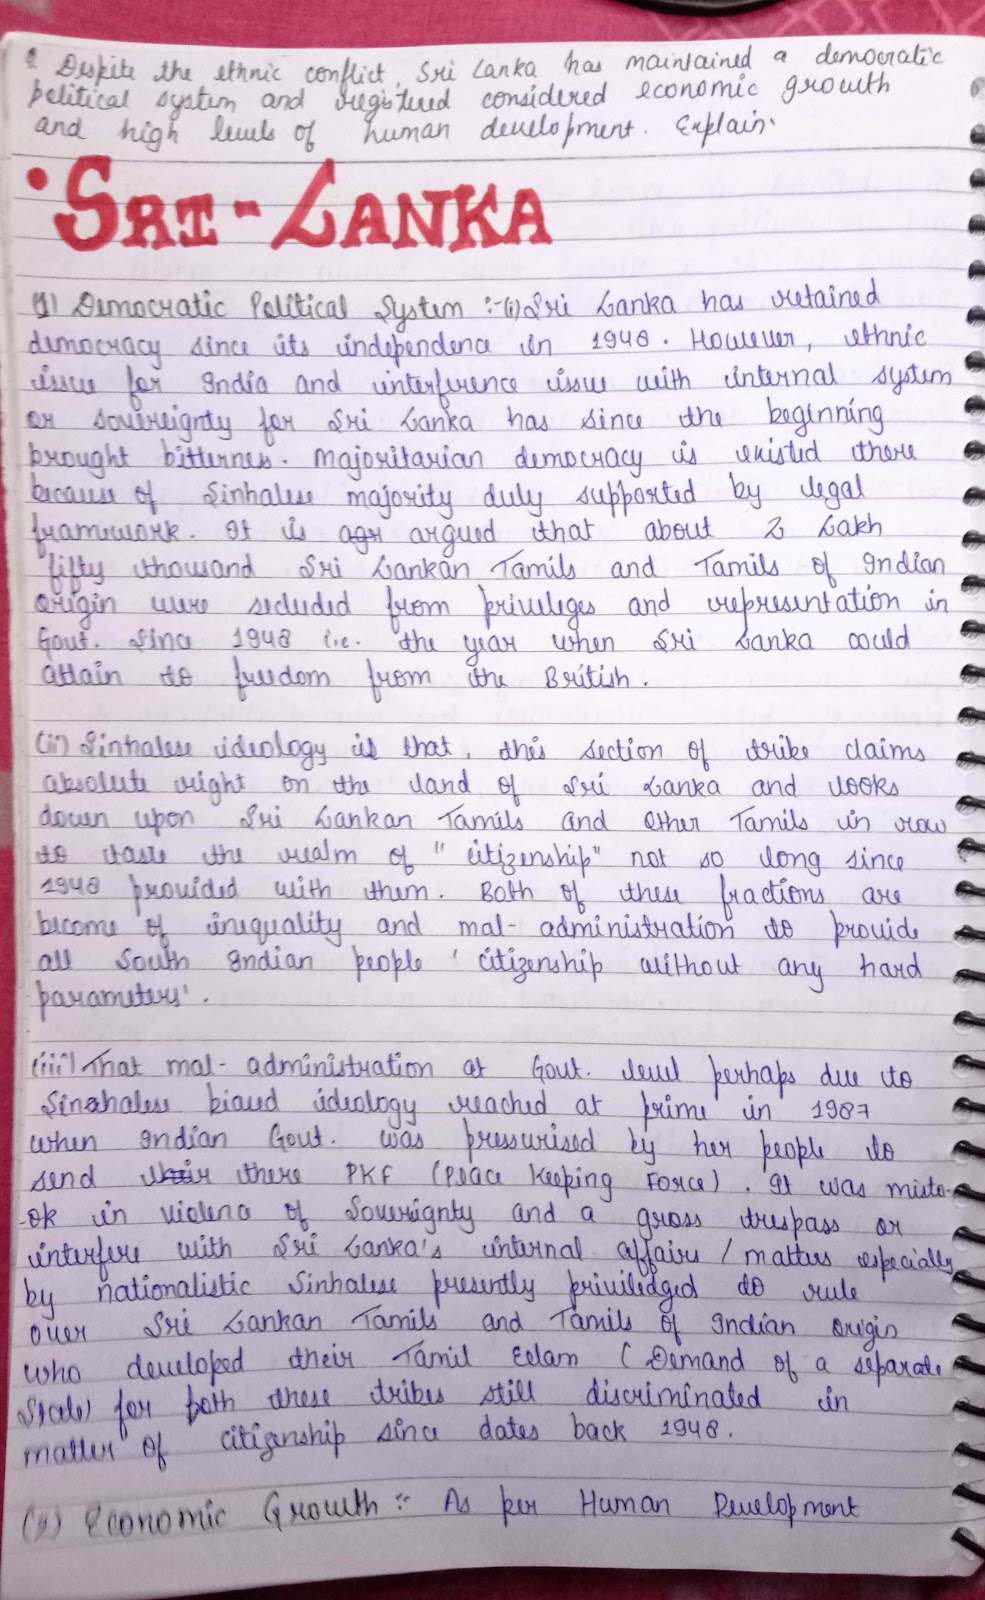 Despite the ethnic conflict, Sri Lanka has maintained a democratic
political system and registered considered economic growth
and high levels of human development. Explain.
• SRI-LANKA
1) Democratic Political System :-(i) Sri Lanka has retained
democracy since its independence in 1948. However, ethnic
issue for India and interference issue with internal system
or sovereignty for Sri Lanka has since the beginning
brought bitterness. Majoritarian democracy is existed there
because of Sinhalese majority duly supported by legal
framework. It is agr argued that about 2 Lakh
fifty thousand Sri Lankan Tamils and Tamils of Indian
origin were secluded from privileges and representation in
Govt. since 1948 i.e. the year when Sri Lanka could
attain to freedom from the British.
(ii) Sinhalese ideology is that, this section of tribe claims
absolute right on the land of Sri Lanka and looks
down upon Sri Lankan Tamils and other Tamils in row
to taste the realm of "citizenship" not so long since
1948 provided with them. Both of these fractions are
become of inequality and mal-administration to provide
all South Indian people 'citizenship without any hard
parameters'.
(iii) That mal-administration at Govt. level perhaps due to
Sinahalese biased ideology reached at prime in 1987
when Indian Govt. was pressurised by her people to
send their there PKF (Peace Keeping Force). It was misto-
-ok in violence of Sovereignty and a gross trespass or
interfere with Sri Lanka's internal affairs / matters especially
by nationalistic Sinhalese presently priviledged to rule
over Sri Lankan Tamils and Tamils of Indian origin
who developed their Tamil Eelam (Demand of a separate
State) for both these tribes still discriminated in
matter of citizenship since dates back 1948.
Economic Growth :- As per Human Development